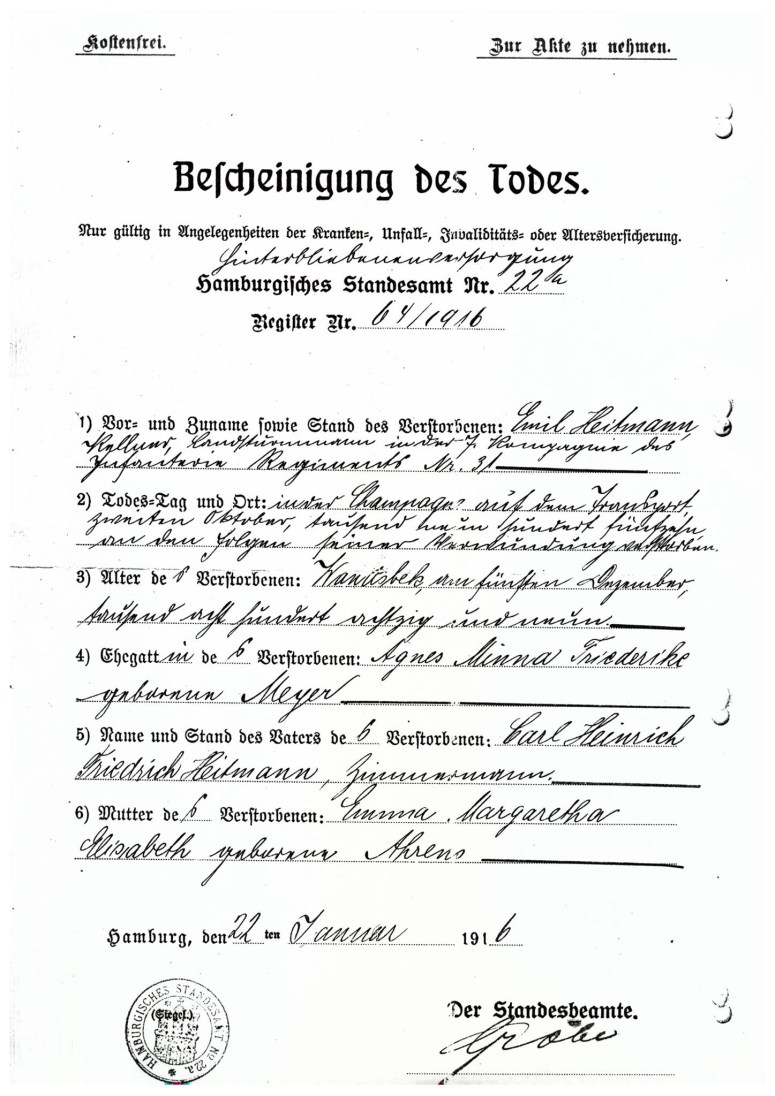 Kostenfrei.
Zur Akte zu nehmen.
Bescheinigung des Todes.
Nur gültig in Angelegenheiten der Kranken-, Unfall-, Invaliditäts- oder Altersversicherung.
Hinterbliebenenversorgung
Hamburgisches Standesamt Nr. 22a
Register Nr. 64/1916
1) Vor- und Zuname sowie Stand des Verstorbenen: Emil Heitmann,
Kellner, Landsturmmann in der 7. Kompagnie des
Infanterie Regiments Nr. 31
2) Todes-Tag und Ort: in der Champagne auf dem Transport,
zweiten Oktober, tausend neun hundert fünfzehn
an den Folgen seiner Verwundung verstorben.
3) Alter des Verstorbenen: Wandsbek, am fünften Dezember,
tausend acht hundert achtzig und neun
4) Ehegattin des Verstorbenen: Agnes Minna Friederike
geborene Meyer
5) Name und Stand des Vaters des Verstorbenen: Carl Heinrich
Friedrich Heitmann, Zimmermann.
6) Mutter des Verstorbenen: Emma Margaretha
Elisabeth geborene Ahrens
Hamburg, den 22ten Januar 1916
Der Standesbeamte.
(Siegel.)
HAMBURGISCHES STANDESAMT No 22a.